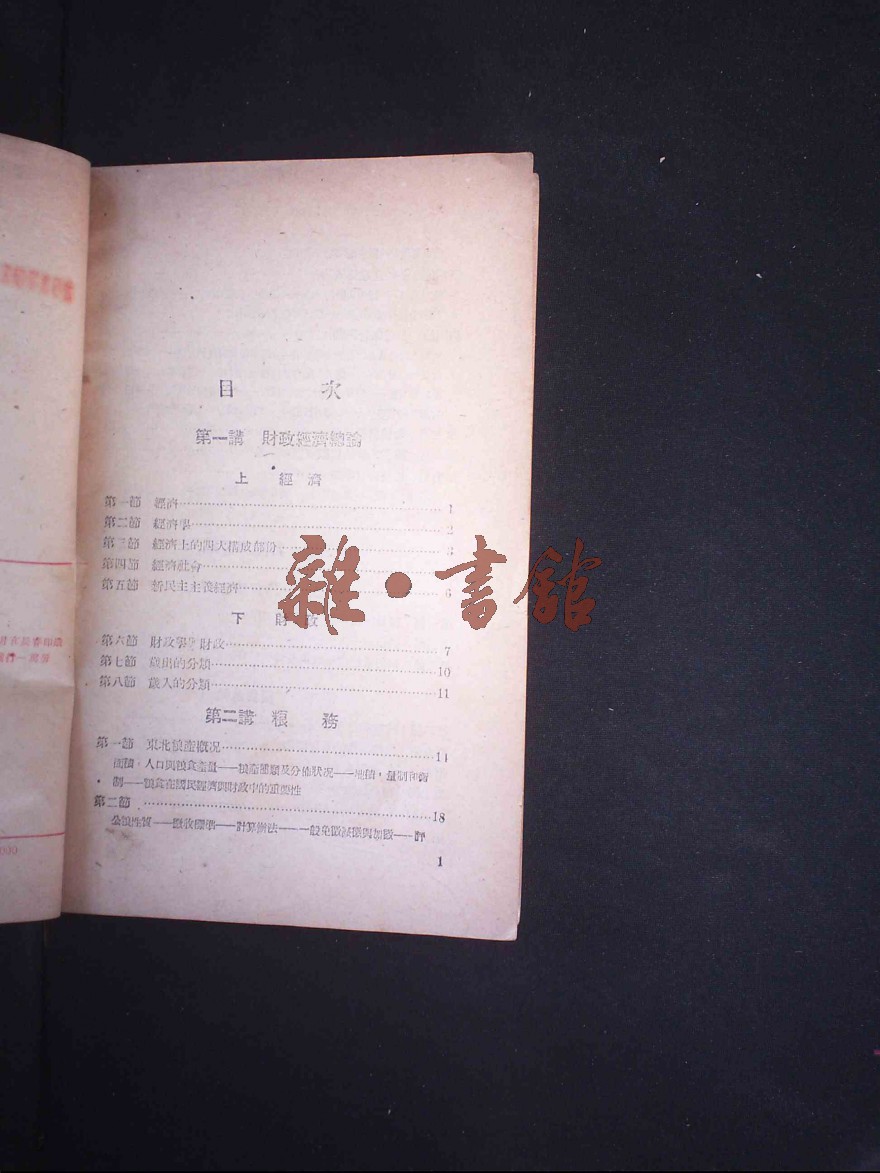 目 次
第一講 財政經濟總論
上 經濟
第一節 經濟 1
第二節 經濟學 2
第三節 經濟上的四大構成部份 3
第四節 經濟社會
第五節 新民主主義經濟 6
下 財政
第六節 財政學與財政 7
第七節 歲出的分類 10
第八節 歲入的分類 11
第二講 糧務
第一節 東北糧產概況 14
面積,人口與糧食產量——糧產種類及分佈狀況——地積,量制和衡
制——糧食在國民經濟與財政中的重要性
第二節 18
公糧性質——徵收標準——計算辦法——一般免徵減徵與加徵——評
1
雜·書館